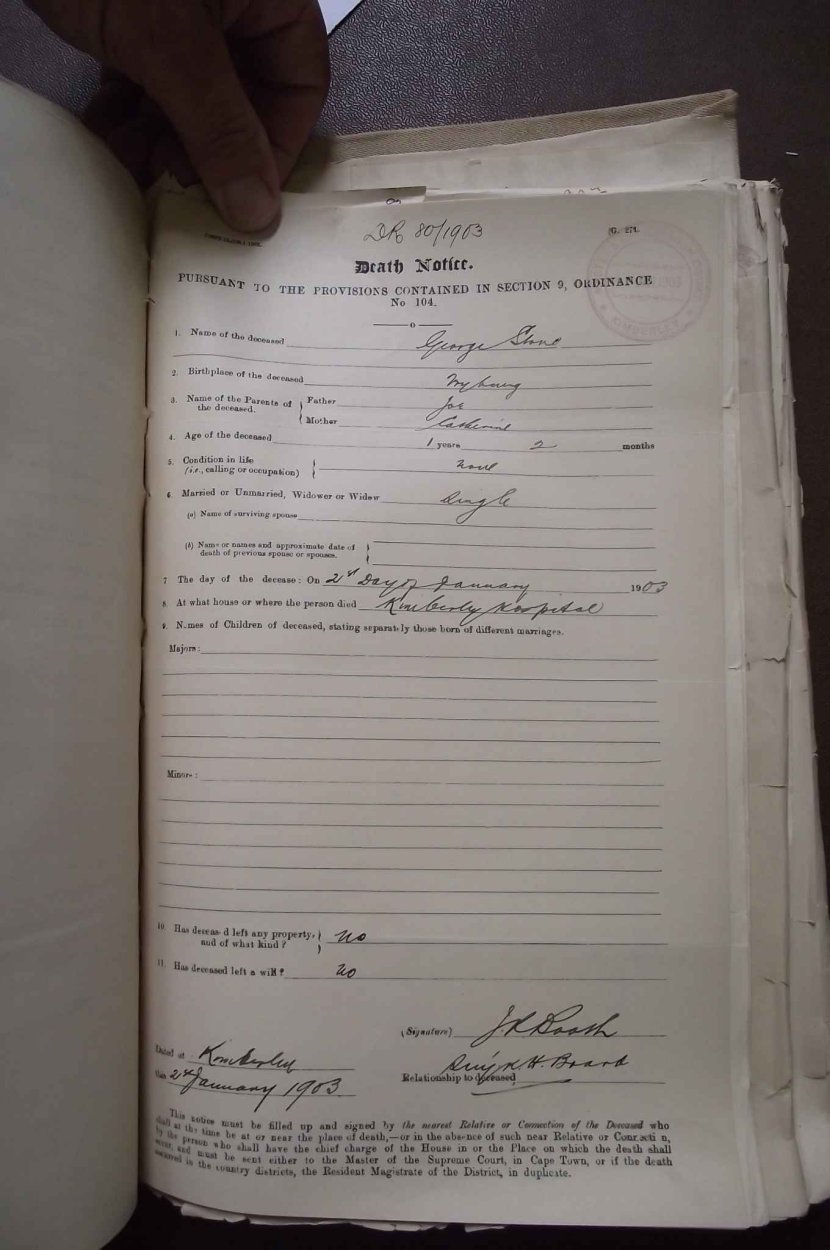 DR 80/1903
G. 271.
Death Notice.
PURSUANT TO THE PROVISIONS CONTAINED IN SECTION 9, ORDINANCE
No 104.
1. Name of the deceased George Stone
2. Birthplace of the deceased
3. Name of the Parents of the deceased. Father Joe
Mother Catherine
4. Age of the deceased 1 years 2 months
5. Condition in life
(i.e., calling or occupation) none
6. Married or Unmarried, Widower or Widow Single
(a) Name of surviving spouse
(b) Name or names and approximate date of
death of previous spouse or spouses.
7 The day of the decease: On 2nd Day of January 1903
8. At what house or where the person died Kimberly Hospital
9. Names of Children of deceased, stating separately those born of different marriages.
Majors:
Minors:
10. Has deceased left any property,
and of what kind? no
11. Has deceased left a will? no
(Signature)
Dated at Kimberley
this 2nd January 1903.
K.H. Board
Relationship to deceased
This notice must be filled up and signed by the nearest Relative or Connection of the Deceased who
shall at the time be at or near the place of death,—or in the absence of such near Relative or Connection,
by the person who shall have the chief charge of the House in or the Place on which the death shall
occur, and must be sent either to the Master of the Supreme Court, in Cape Town, or if the death
occurred in the country districts, the Resident Magistrate of the District, in duplicate.